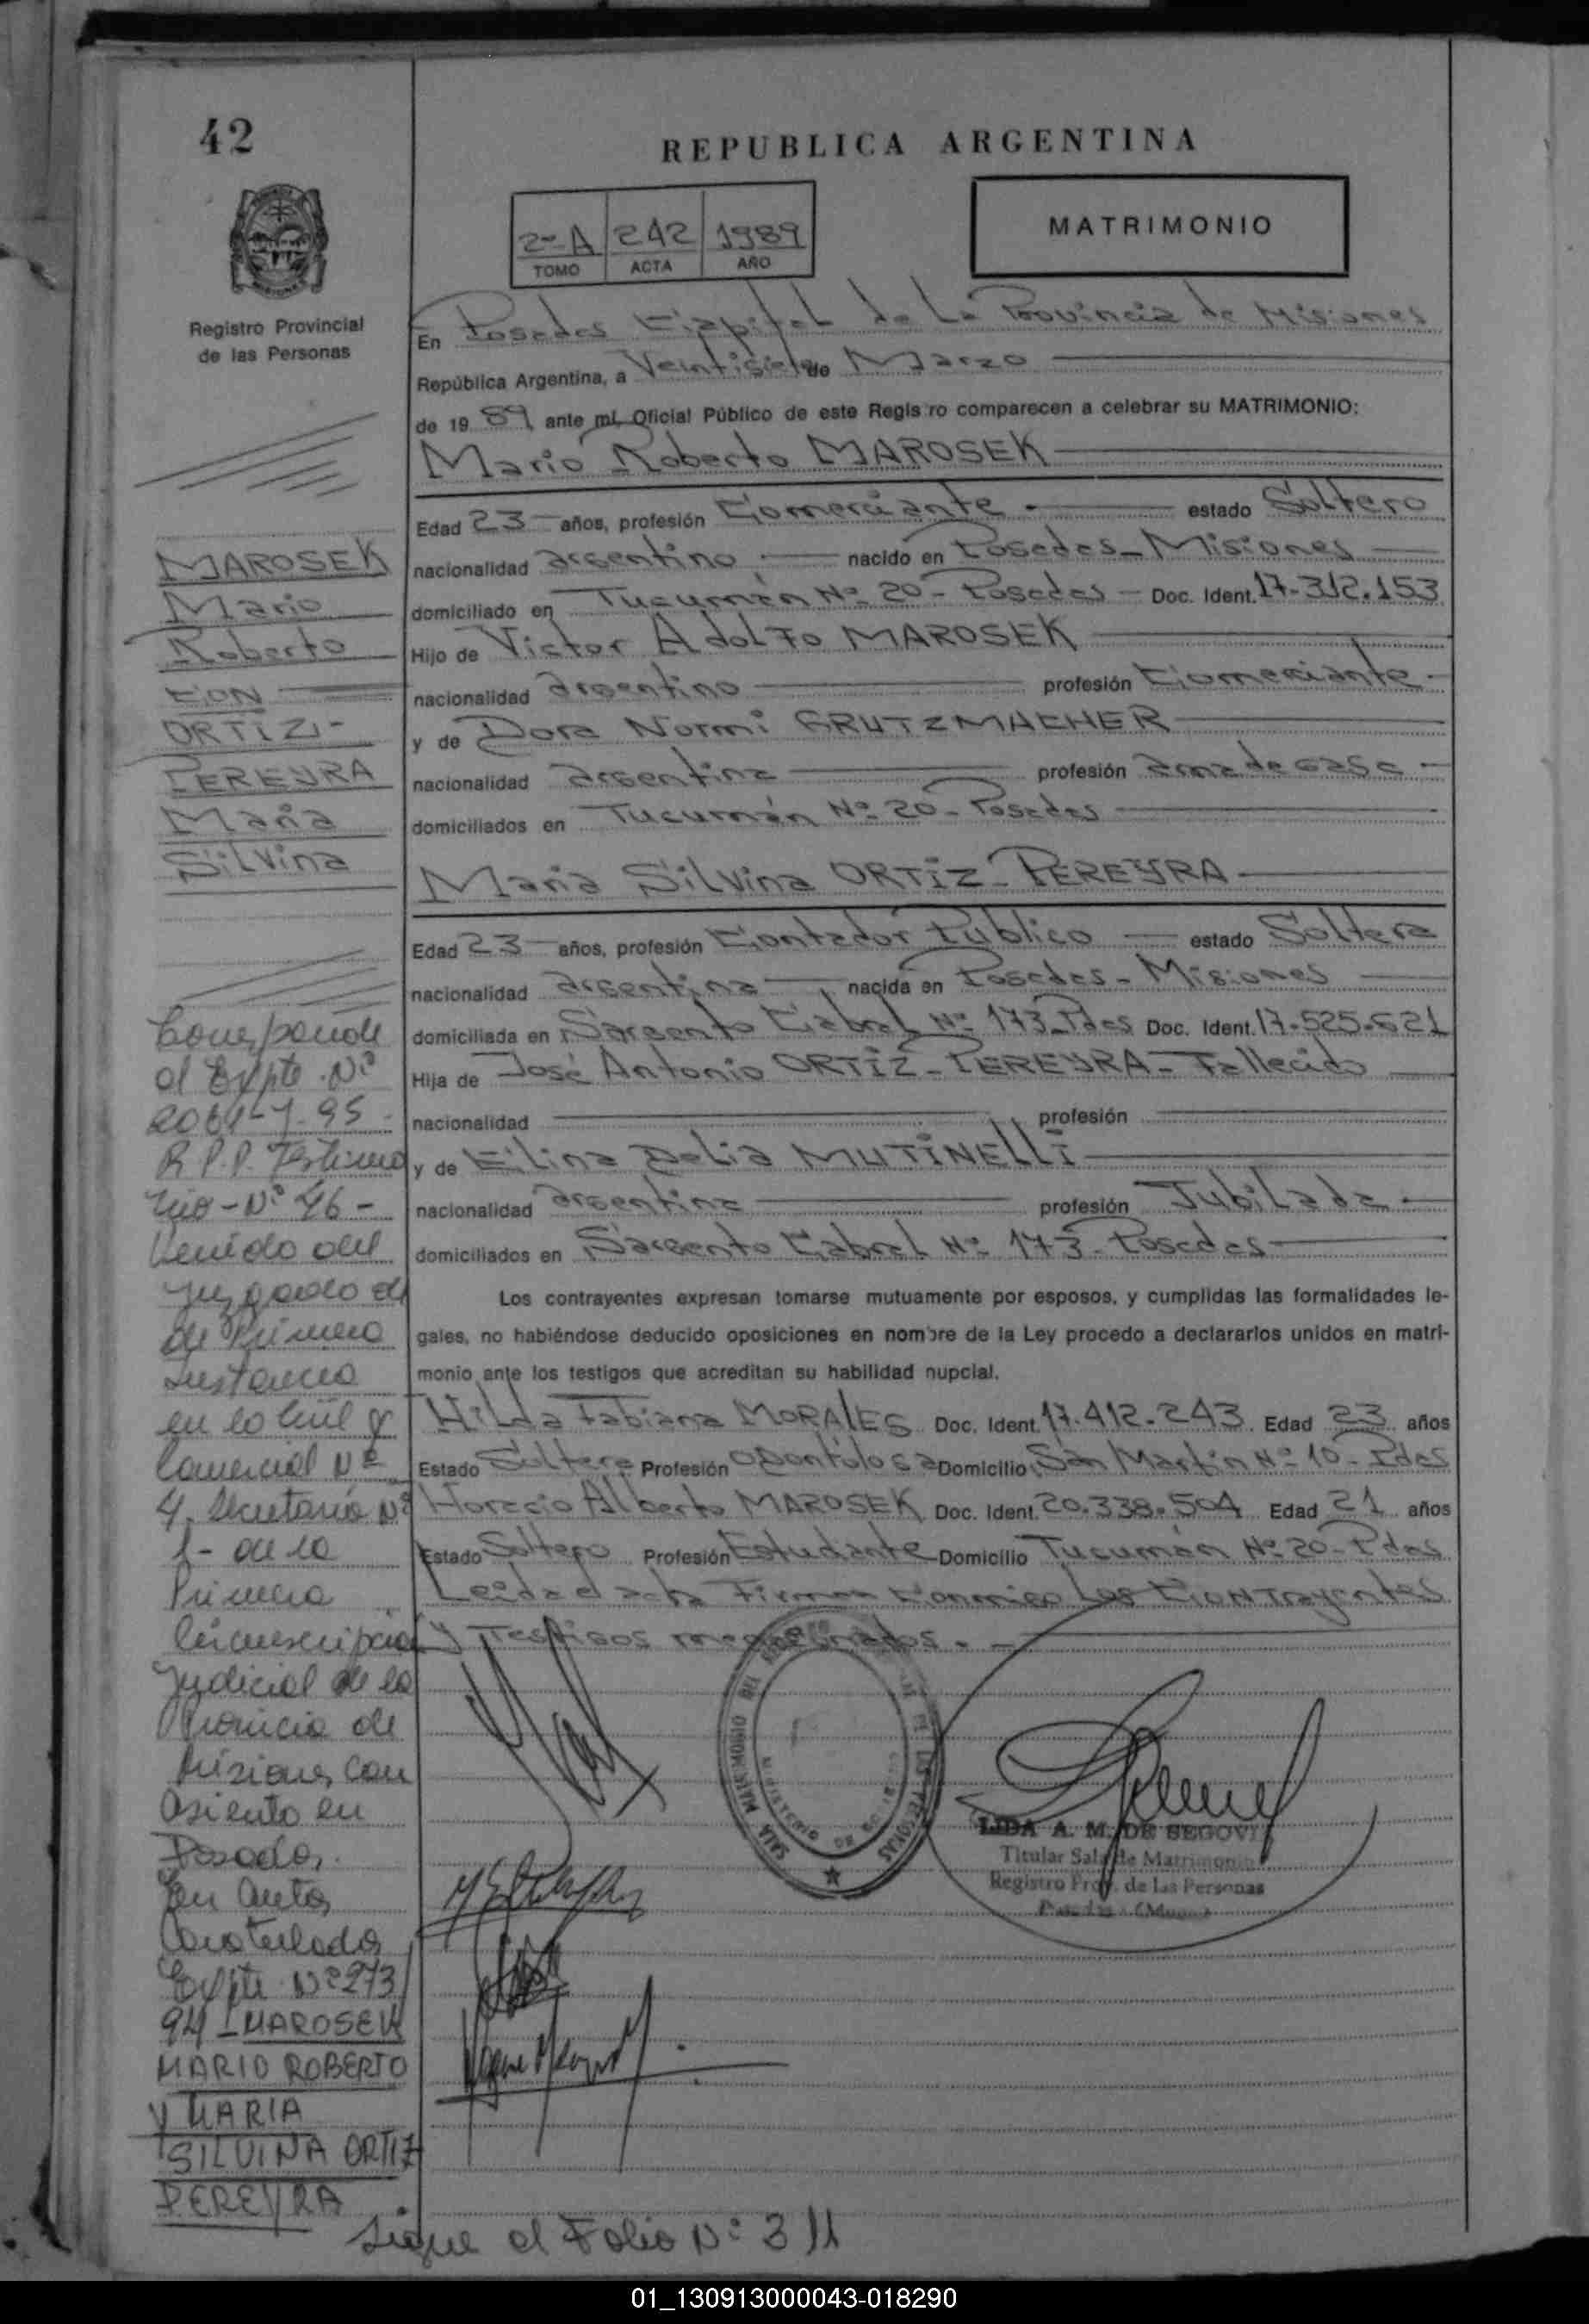 42
REPUBLICA ARGENTINA
2-A 242 1989
TOMO ACTA AÑO
MATRIMONIO
Registro Provincial
de las Personas
En Posadas Capital de La Provincia de Misiones
República Argentina, a Veintisiete de Marzo
de 1989, ante mi, Oficial Público de este Registro comparecen a celebrar su MATRIMONIO:
Mario Roberto MAROSEK
Edad 23 años, profesión Comerciante estado Soltero
nacionalidad argentino nacido en Posadas - Misiones
domiciliado en Tucumán Nº 20 - Posadas - Doc. Ident. 17.312.153
Hijo de Victor Adolfo MAROSEK
nacionalidad argentino profesión Comerciante
y de Dora Normi GRUTZMACHER
nacionalidad argentina profesión ama de casa
domiciliados en Tucumán Nº 20 - Posadas
Maria Silvina ORTIZ - PEREYRA
Edad 23 años, profesión Contador Público estado Soltera
nacionalidad argentina nacida en Posadas - Misiones
domiciliada en Sargento Cabral Nº 173 - Pdas Doc. Ident. 17.525.621
Hija de José Antonio ORTIZ - PEREYRA - Fallecido
nacionalidad profesión
y de Elina Delia MUTINELLI
nacionalidad argentina profesión Jubilada
domiciliados en Sargento Cabral Nº 173 - Posadas
Los contrayentes expresan tomarse mutuamente por esposos, y cumplidas las formalidades le-
gales, no habiéndose deducido oposiciones en nombre de la Ley procedo a declararlos unidos en matri-
monio ante los testigos que acreditan su habilidad nupcial.
Hilda Fabiana MORALES Doc. Ident. 17.412.243 Edad 23 años
Estado Soltera Profesión Odontóloga Domicilio San Martín Nº 10 - Pdas
Horacio Alberto MAROSEK Doc. Ident. 20.338.504 Edad 21 años
Estado Soltero Profesión Estudante Domicilio Tucumán Nº 20 - Pdas
Leida el acta Firman Conmigo Los Contrayentes
y Testigos mencionados. -
LIDA A. M. DE SEGOVIA
Titular Sala de Matrimonio
Registro Prov. de las Personas
MAROSEK
Mario
Roberto
CON
ORTIZ -
PEREYRA
Maria
Silvina
Corresponde
al Expte. Nº
2061-J-95
R.P.P. Testimo
nio - Nº 46 -
Venido del
Juzgado de
de Primera
Instancia
en lo Civil y
Comercial Nº
4. Secretaria Nº
1 - de la
Primera
Circunscripcion
Judicial de la
Provincia de
Misiones con
Asiento en
Posadas.
En autos
Caratulados
Expte. Nº 273/
94 - MAROSEK
MARIO ROBERTO
Y MARIA
SILVINA ORTIZ
PEREYRA.
Sigue al Folio Nº 311
01_130913000043-018290